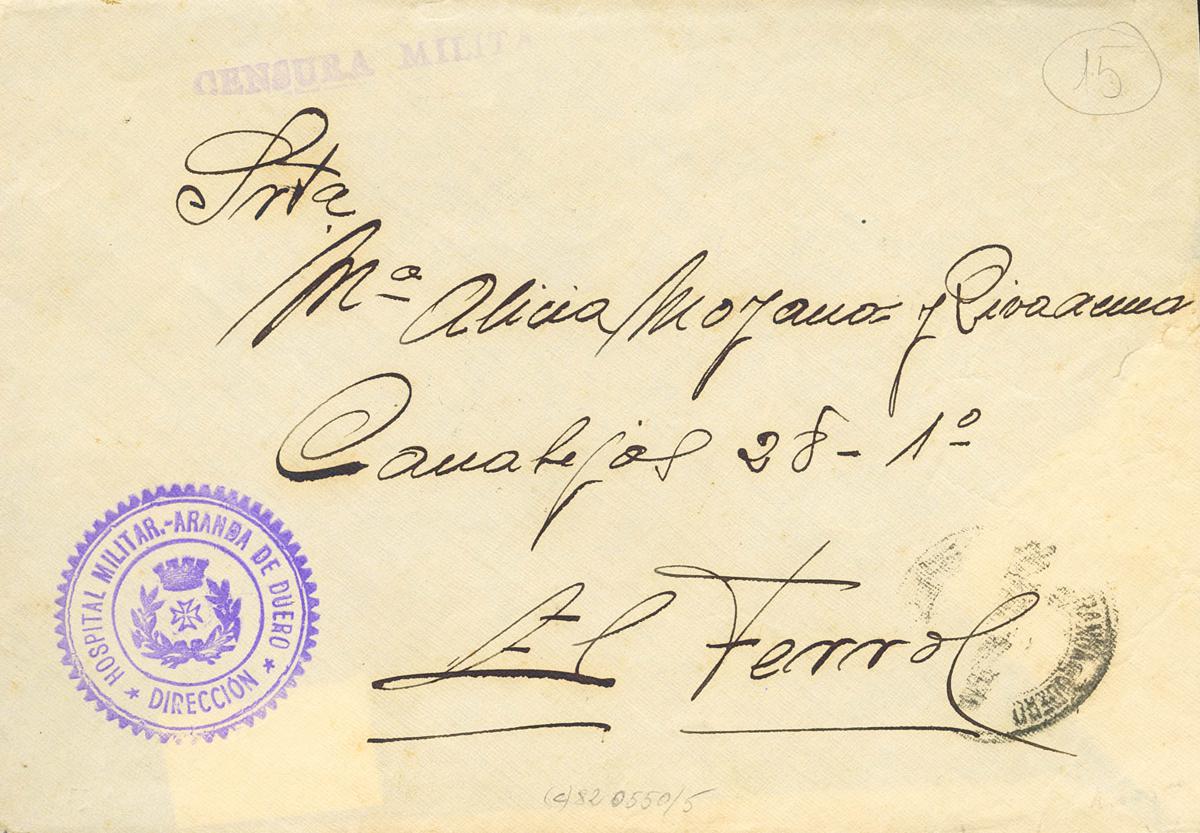 CENSURA MILITA
15
Srta
Mª Alicia Moyano y Rivadema
Canalejas 28 - 1º
El Ferrol
HOSPITAL MILITAR.-ARANDA DE DUERO
★ DIRECCIÓN ★
DUERO
(c) 82 0550/5